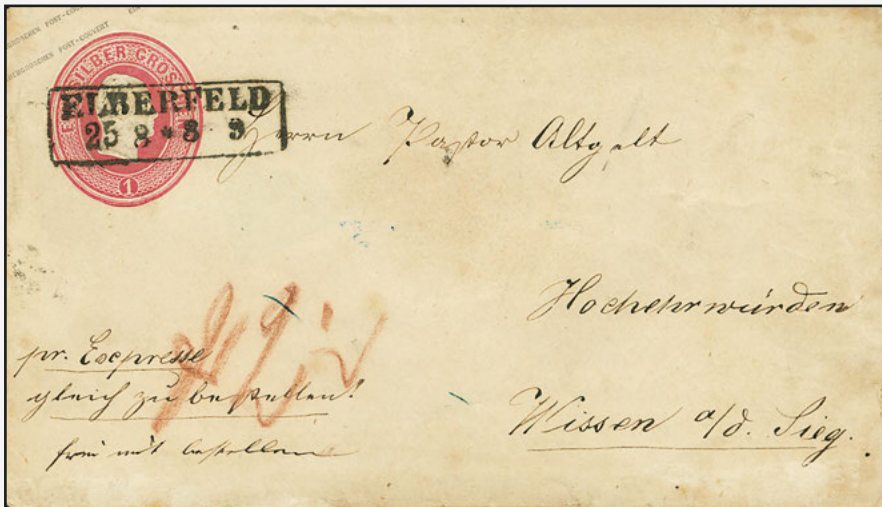 POST-COUVERT
EIN SILBER GROSCHEN
ELBERFELD
25 8 * 8 9
1
Herrn Pastor Altgelt
Hochehrwürden
Wissen a/d. Sieg.
pr. Expresse
gleich zu bestellen!
frei mit bestellen